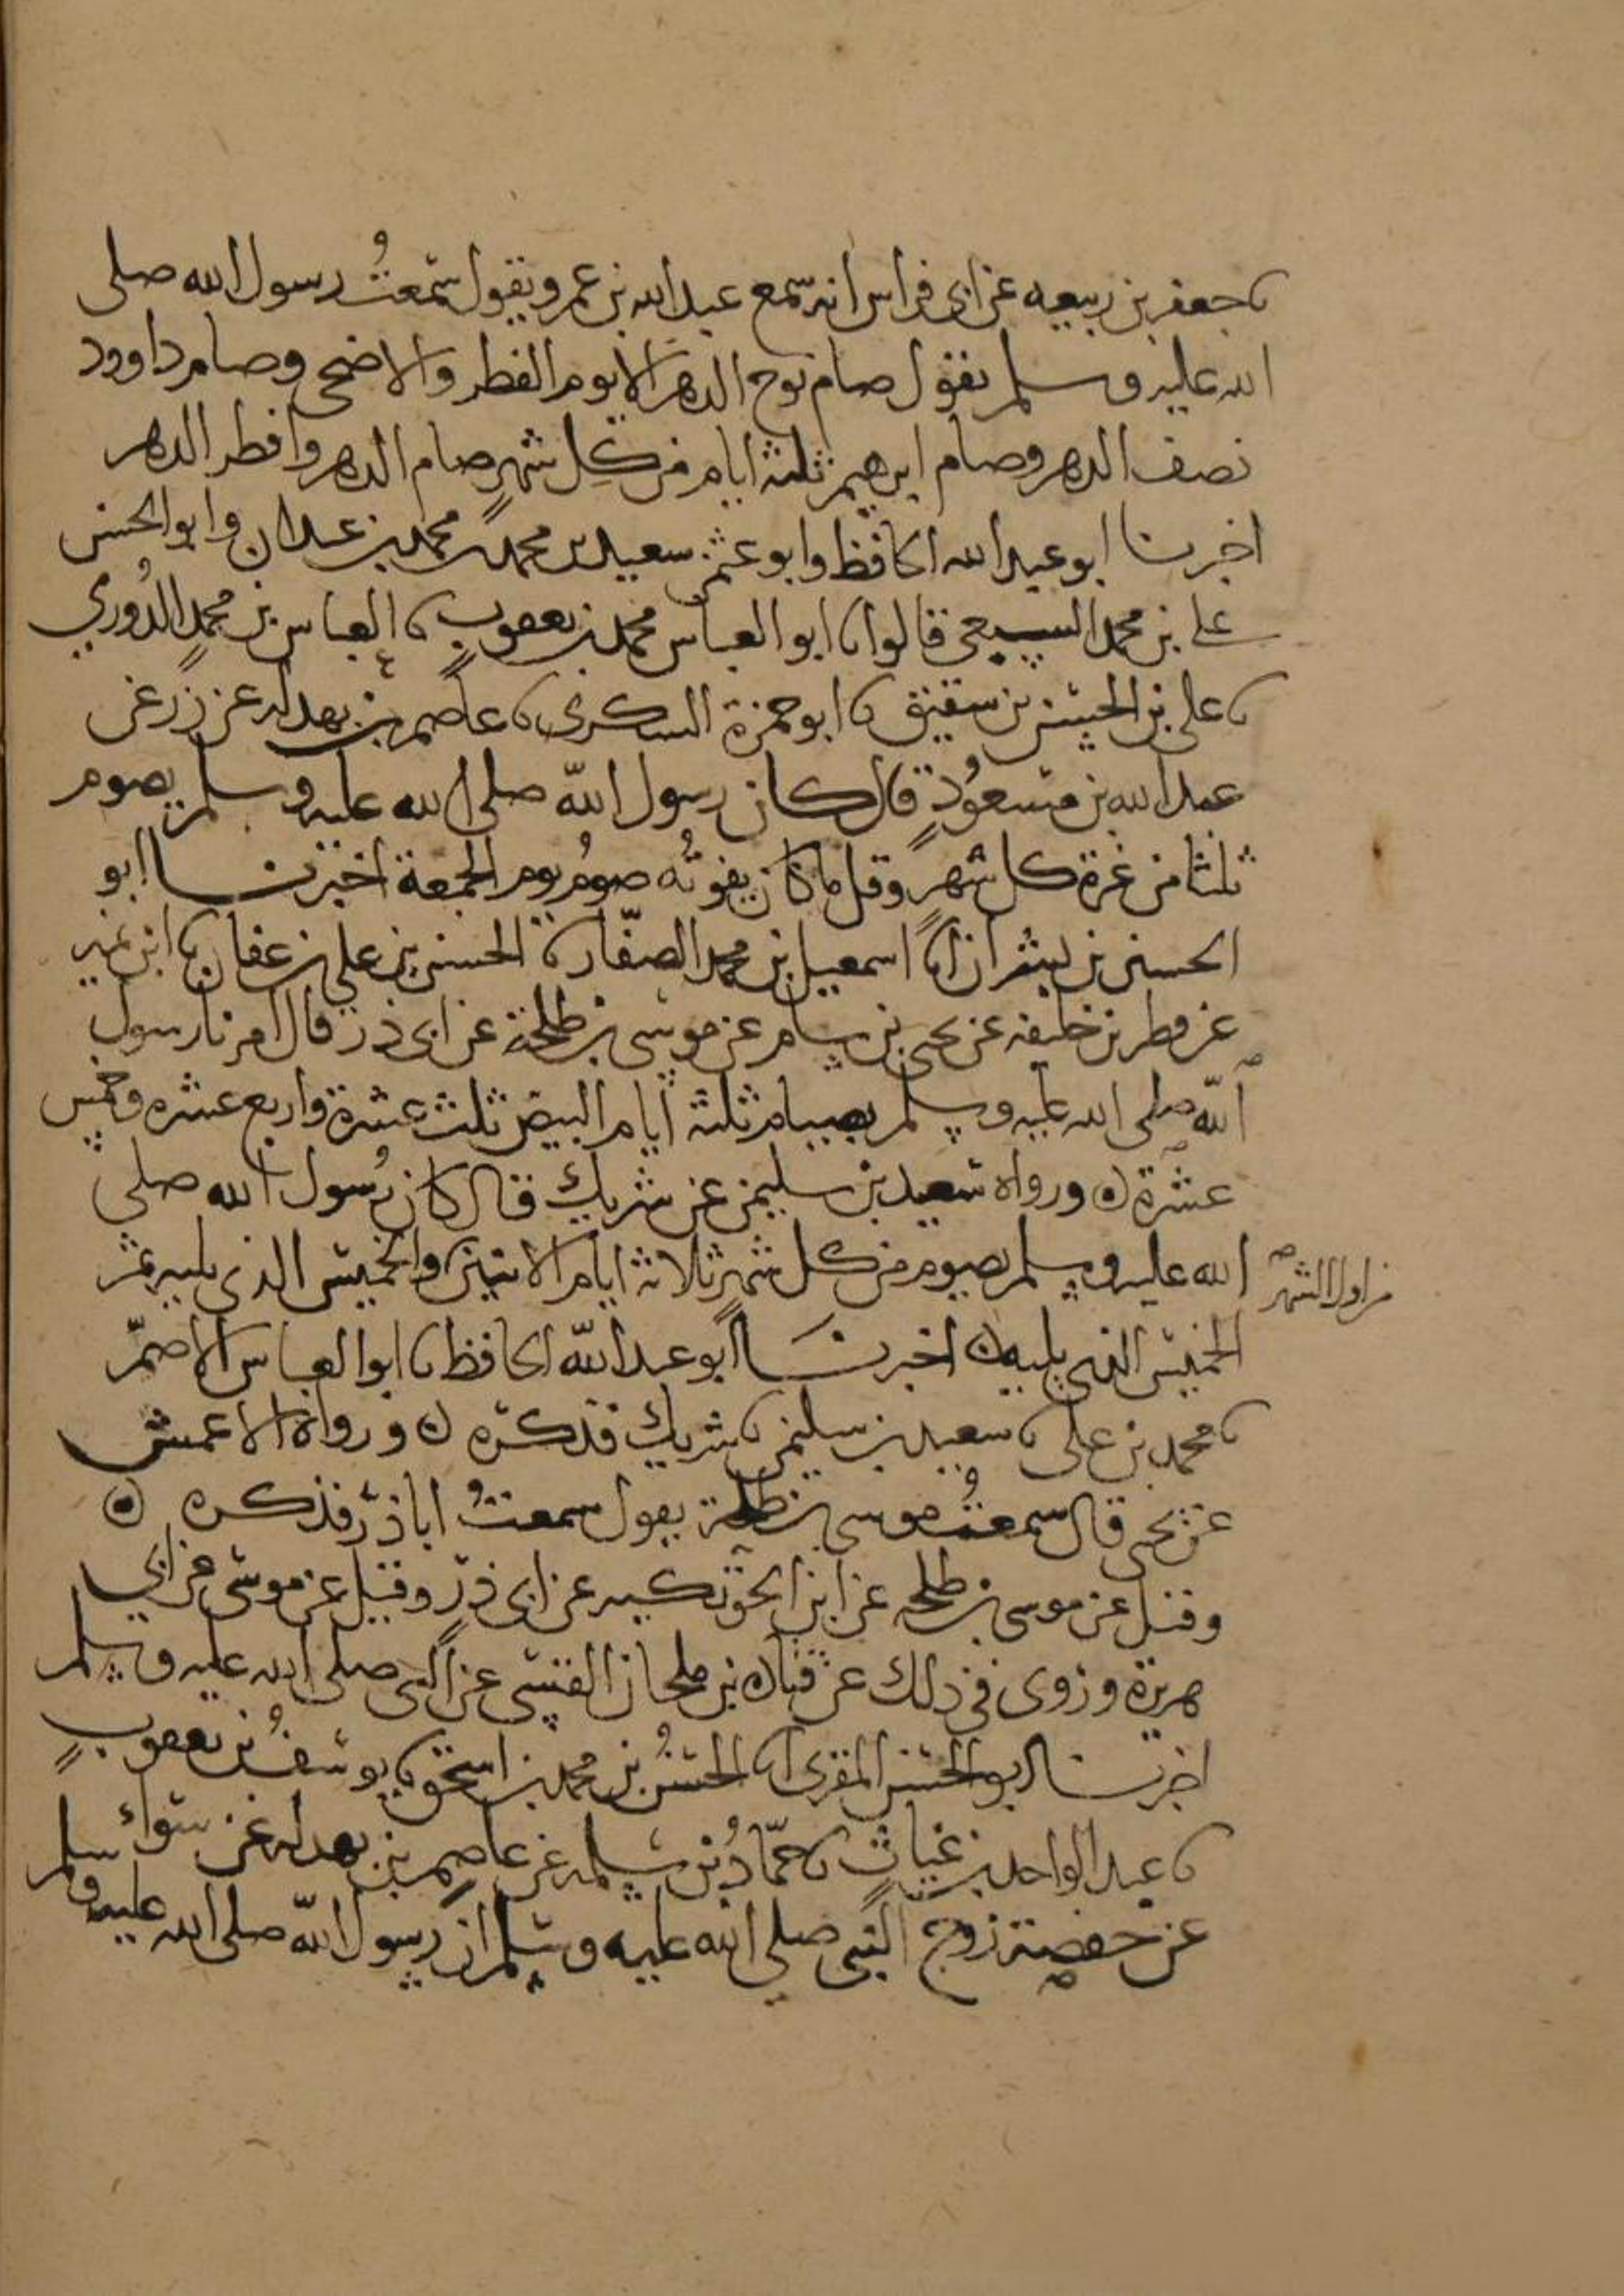 نا جعفر بن ربيعه عن ابى فراس انه سمع عبد الله بن عمرو يقول سمعتُ رسول الله صلى
الله عليه وسلم يقول صام نوح الدهر الا يوم الفطر والاضحى وصام داوود
نصف الدهر وصام ابرهيم ثلثة ايام من كل شهر صام الدهر وافطر الدهر
اخبرنا ابو عبد الله الحافظ وابو عثمن سعيد بن محمد بن محمد بن عبدان وابو الحسن
على بن محمد السبيعى قالوا نا ابو العباس محمد بن يعقوب نا العباس بن محمدٍ الدُوري
نا على بن الحسن بن شقيق نا ابو حمزة السكرى نا عاصم بن بهدله عن زر عن
عبد الله بن مسعُودٍ قال كان رسول الله صلى الله عليه وسلم يصوم
ثلثا من غرة كل شهر وقل ما كان يفوتُه صومُ يوم الجمعة اخبرنا ابو
الحسين بن بشران انا اسمعيل بن محمد الصفّار نا الحسن بن علي بن عفان نا ابن نمير
عن فطر بن خليفه عن يحيى بن سام عن موسى بن طلحة عن ابى ذر قال امرنا رسول
الله صلى الله عليه وسلم بصيام ثلثة ايام البيض ثلث عشرة واربع عشره وخمس
عشرة ٥ ورواه سعيد بن سليمن عن شريك قال كان رسول الله صلي
الله عليه وسلم يصوم من كل شهر ثلاثة ايام الاثنين والخميس الذى يليه ثم
من اول الشهر
الخميس الذي يليه ٥ اخبرنا ابو عبد الله الحافظ نا ابو العباس الاصمّ
نا محمد بن على نا سعيد بن سليمن نا شريك فذكره ٥ ورواه الاعمش
عن يحيى قال سمعتُ موسى بن طلحة يقول سمعتُ ابا ذر فذكره ٥
وقيل عن موسى بن طلحه عن ابن الحوتكيه عن ابى ذرٍ وقيل عن موسى عن ابي
هريرة وروى فى ذلك عن قتادة بن ملحان القيسي عن النبى صلى الله عليه وسلم
اخبرنا ابو الحسن المقرى انا الحسنُ بن محمد بن اسحق نا يوسفُ بن يعقوبٍ
نا عبد الواحد بن غياثٍ نا حمّادُ بن سلمه عن عاصم بن بهدله عن سواء
عن حفصة زوج النبى صلي الله عليه وسلم ان رسول الله صلى الله عليه وسلم